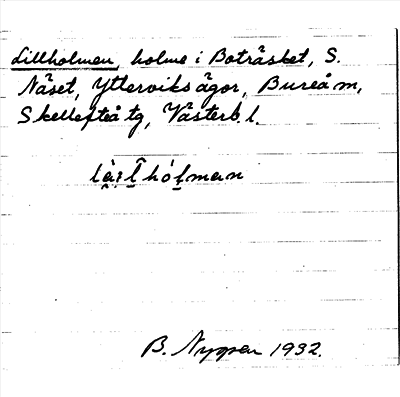 Lillholmen, holme i Boträsket, S.
Näset, Ytterviks ägor, Bureå m,
Skellefteå tg, Västerb. l.
hólman
B. Nygren 1932.